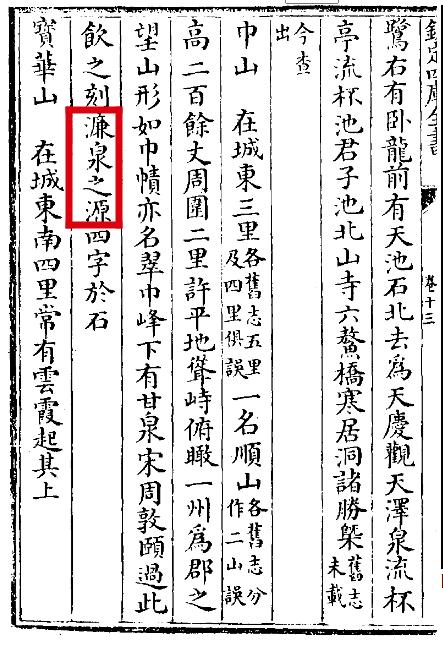 欽定四庫全書
卷十三
鷺右有卧龍前有天池石北去爲天慶觀天澤泉流杯
亭流杯池君子池北山寺六鰲橋寒居洞諸勝槩舊志未載
今查出
巾山 在城東三里各舊志五里及四里俱誤一名順山各舊志分作二山誤
高二百餘丈周圍二里許平地聳峙俯瞰一州爲郡之
望山形如巾幘亦名翠巾峰下有甘泉宋周敦頤過此
飲之刻濂泉之源四字於石
寶華山 在城東南四里常有雲霞起其上